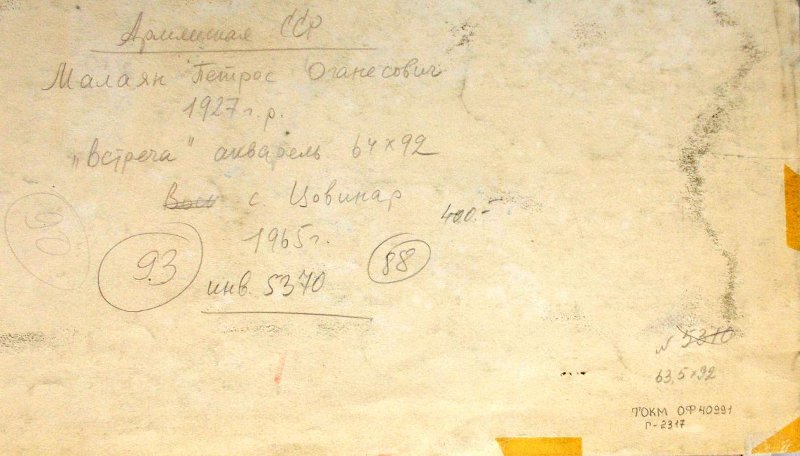 Армянская ССР
Малаян Петрос Оганесович
1927 г.р.
„Встреча" акварель 64×92
с. Цовинар
400.-
1965 г.
90
93
88
инв. 5370
N 5370
63,5×92
ТОКМ ОФ 40991
Г-2317